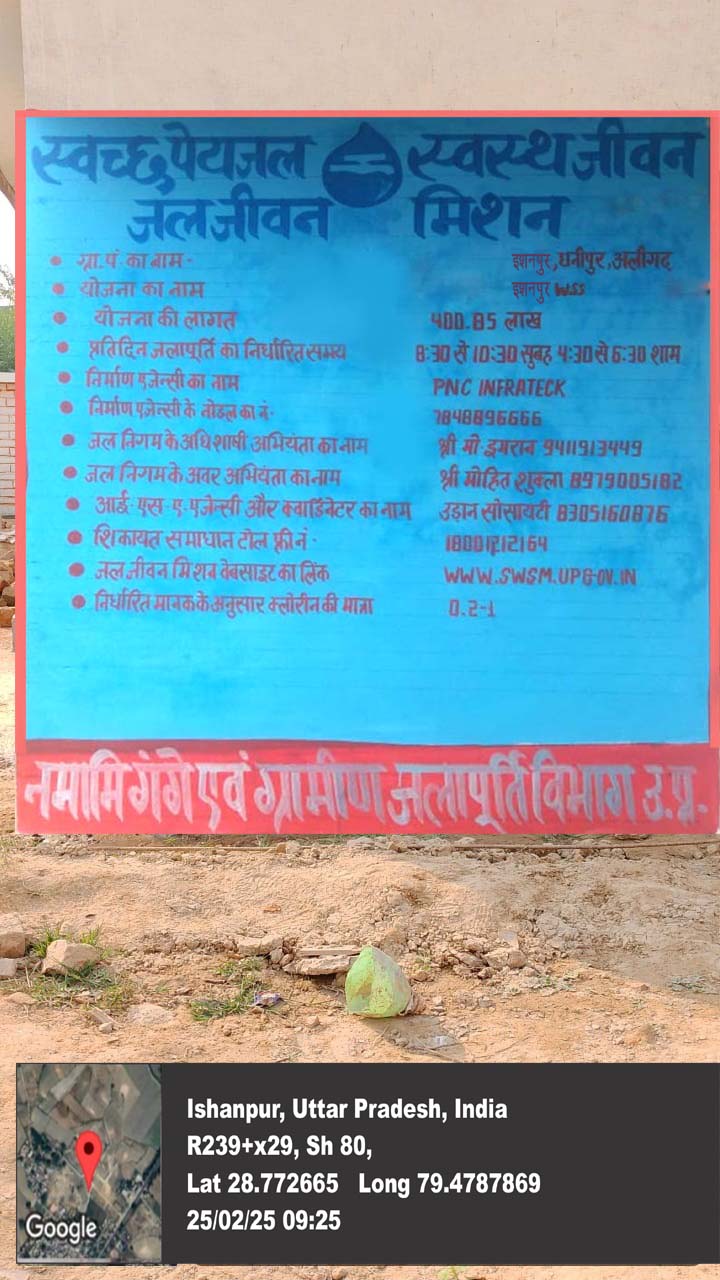 स्वच्छ पेयजल स्वस्थ जीवन
जल जीवन मिशन
ग्रा.पं. का नाम - इशनपुर, धनीपुर, अलीगढ़
योजना का नाम इशनपुर WSS
योजना की लागत 400.85 लाख
प्रतिदिन जलापूर्ति का निर्धारित समय 8:30 से 10:30 सुबह 4:30 से 6:30 शाम
निर्माण एजेन्सी का नाम PNC INFRATECK
निर्माण एजेन्सी के नोडल का नं. 7848896666
जल निगम के अधिशाषी अभियंता का नाम श्री मो इमरान 9411913449
जल निगम के अवर अभियंता का नाम श्री मोहित शुक्ला 8979005182
आई-एस-ए-एजेन्सी और क्वार्डिनेटर का नाम उड़ान सोसायटी 8305160876
शिकायत समाधान टोल फ्री नं - 18001212164
जल जीवन मिशन वेबसाइट का लिंक WWW.SWSM.UPGOV.IN
निर्धारित मानक के अनुसार क्लोरीन की मात्रा 0.2-1
नमामि गंगे एवं ग्रामीण जलापूर्ति विभाग उ.प्र.
Ishanpur, Uttar Pradesh, India
R239+x29, Sh 80,
Lat 28.772665 Long 79.4787869
25/02/25 09:25
Google